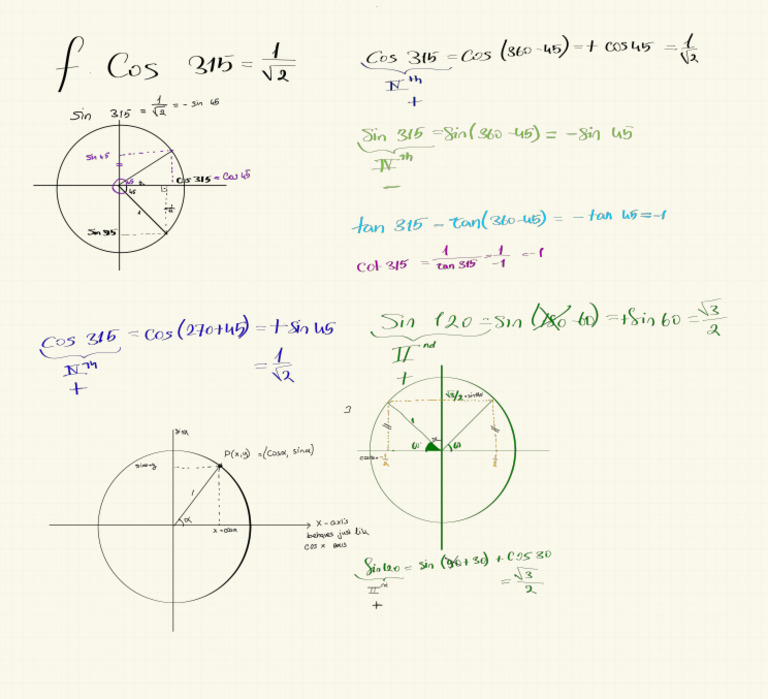 f. Cos 315 = 1/√2
Sin 315 = 1/√2 = - sin 45
Sin 45
45
45
Cos 315 = Cos 45
1
Sin 315
Cos 315 = Cos (360-45) = + cos 45 = 1/√2
IV th
+
Sin 315 = Sin(360-45) = -Sin 45
IV th
-
tan 315 - tan(360-45) = - tan 45 = -1
Cot 315 = 1/tan 315 = 1/-1 = -1
Cos 315 = Cos (270+45) = + Sin 45
IV th
+
= 1/√2
Sin 120 = Sin (180-60) = + Sin 60 = √3/2
II nd
+
3
√3/2 = sin 60
1
60
60
P(x,y) = (cosα, sinα)
1
α
x = cosα
x-axis
behaves just like
cos x axis
Sin 120 = sin (90+30) + Cos 30
II nd
= √3/2
+